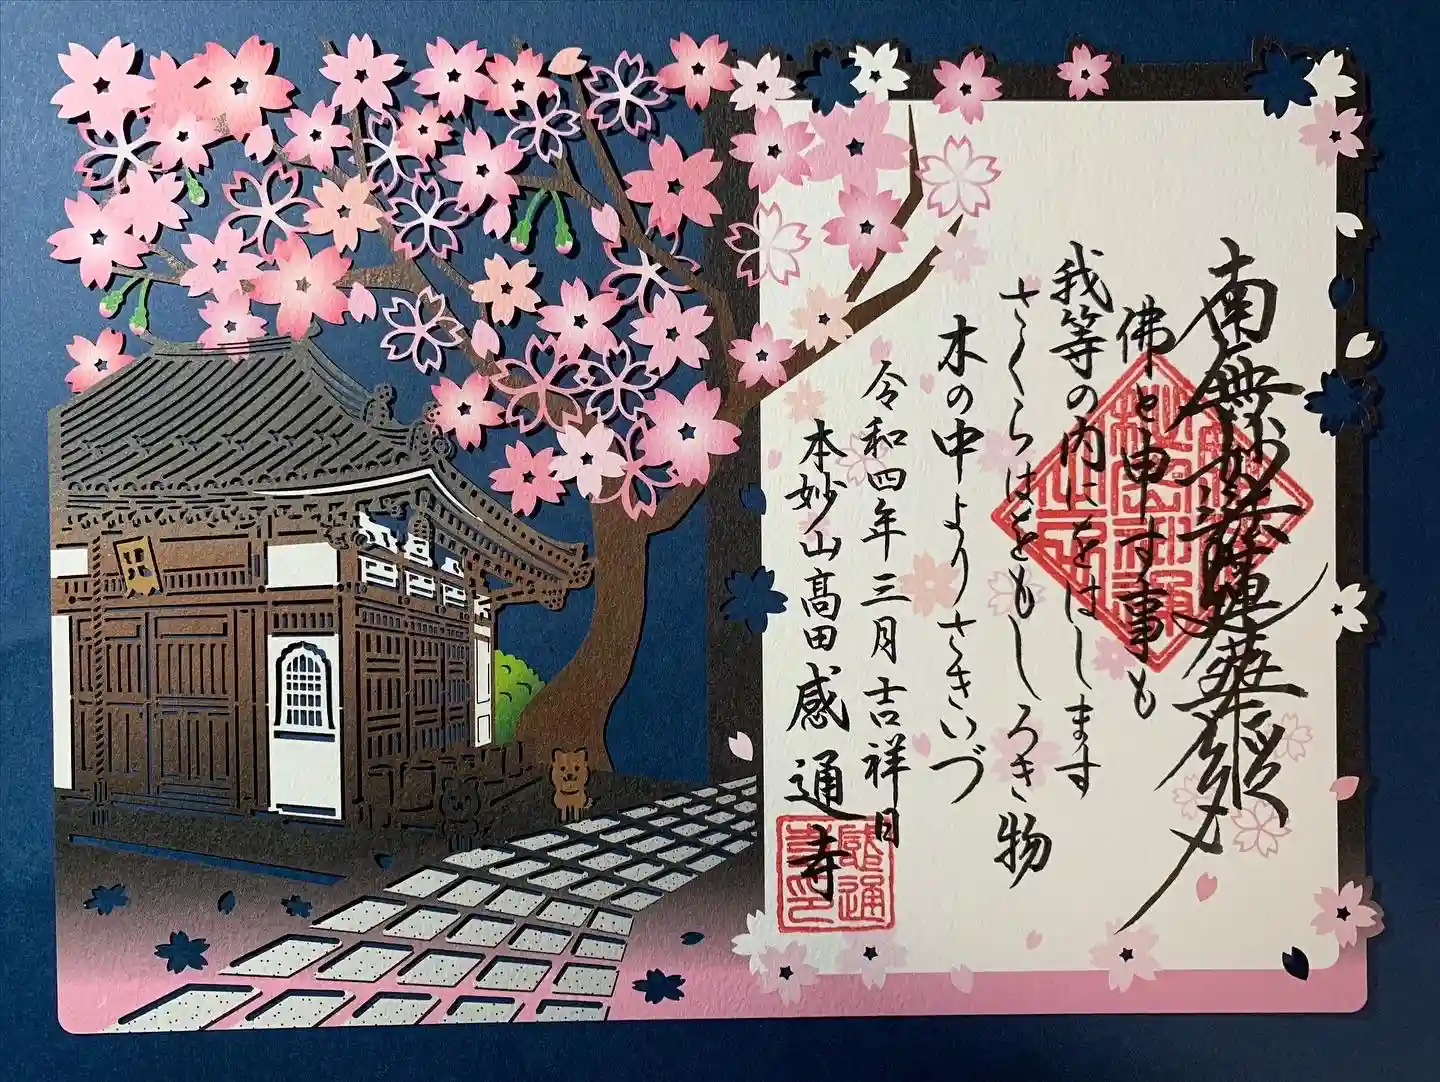 南無妙法蓮華経
佛と申す事も
我等の内にをはします
さくらはをもしろき物
木の中よりさきいづ
令和四年三月吉祥日
本妙山高田感通寺
感通
寺印